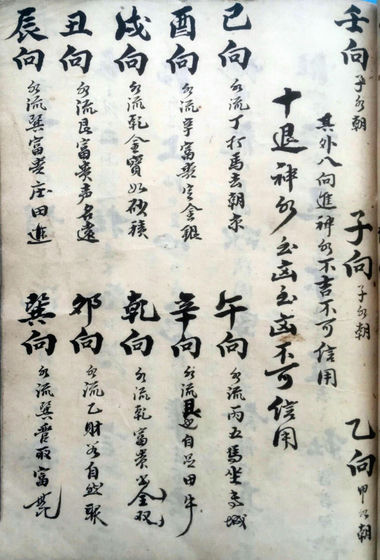 壬向 子水朝 子向 子水朝 乙向 甲水朝
其外八向進神水不吉不可信用
十退神水至凶至凶不可信用
巳向 水流丁打馬去朝京 午向 水流丙五馬坐專城
酉向 水流辛富貴定金銀 辛向 水流自足田牛
戌向 水流乾金寶如砂積 乾向 水流乾富貴金双
丑向 水流艮富貴声名遠 卯向 水流乙財谷自然聚
辰向 水流巽富貴庄田進 巽向 水流巽管取富